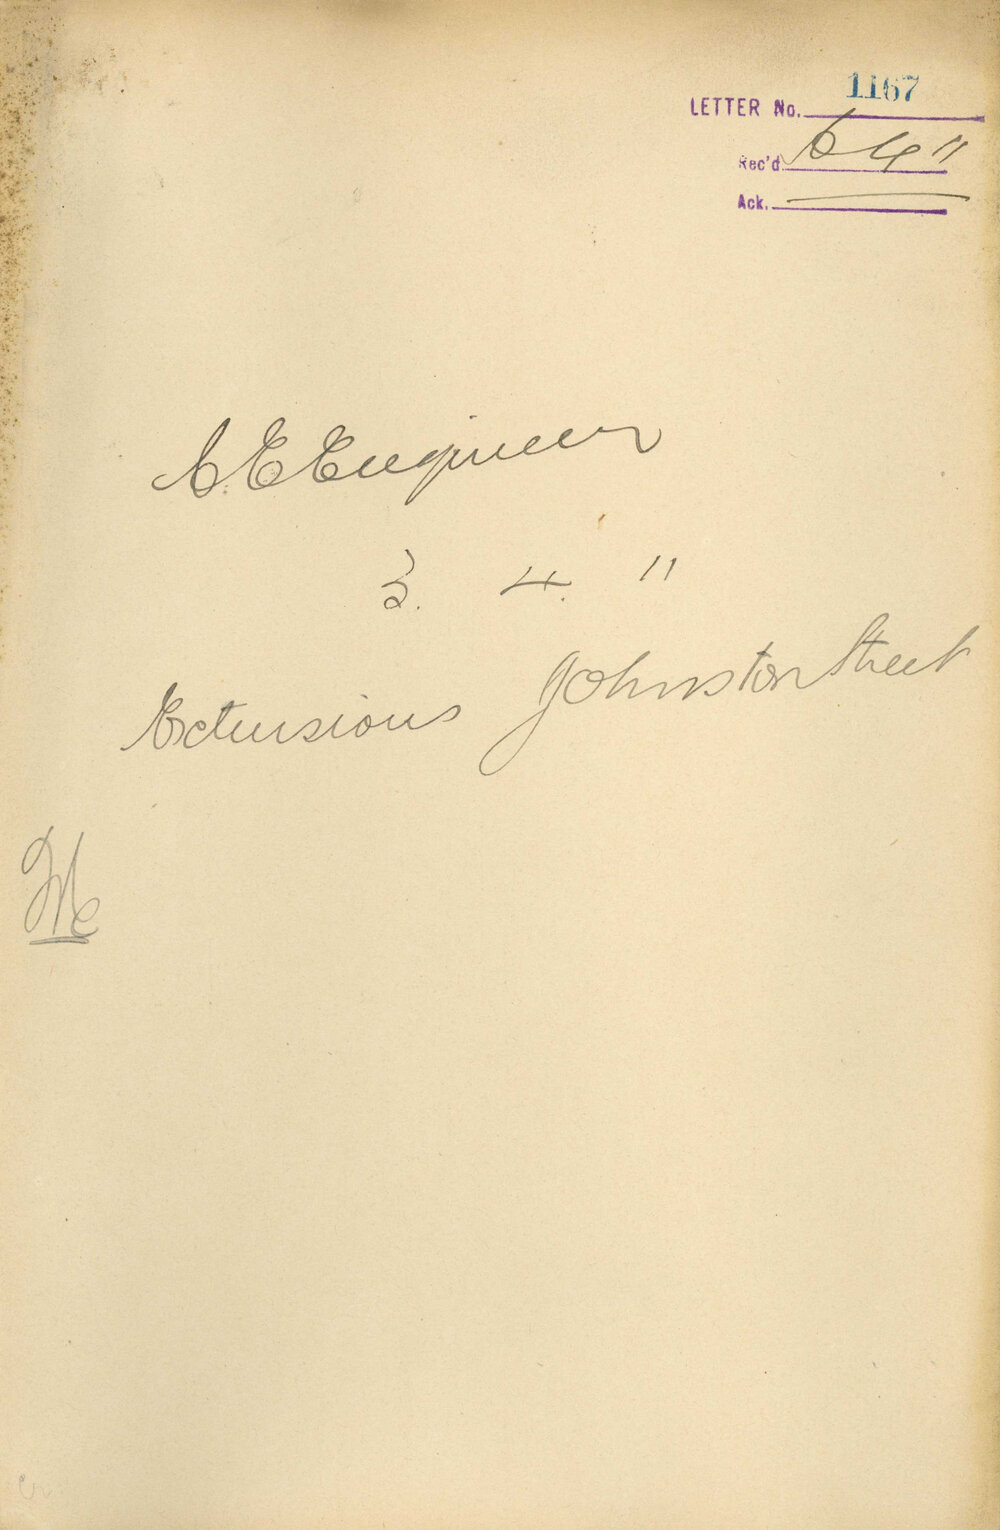 1167
LETTER No.
Rec'd 6 4 11
Ack.
C E Engineer
3. 4. 11
Extensions Johnston Street
Mc